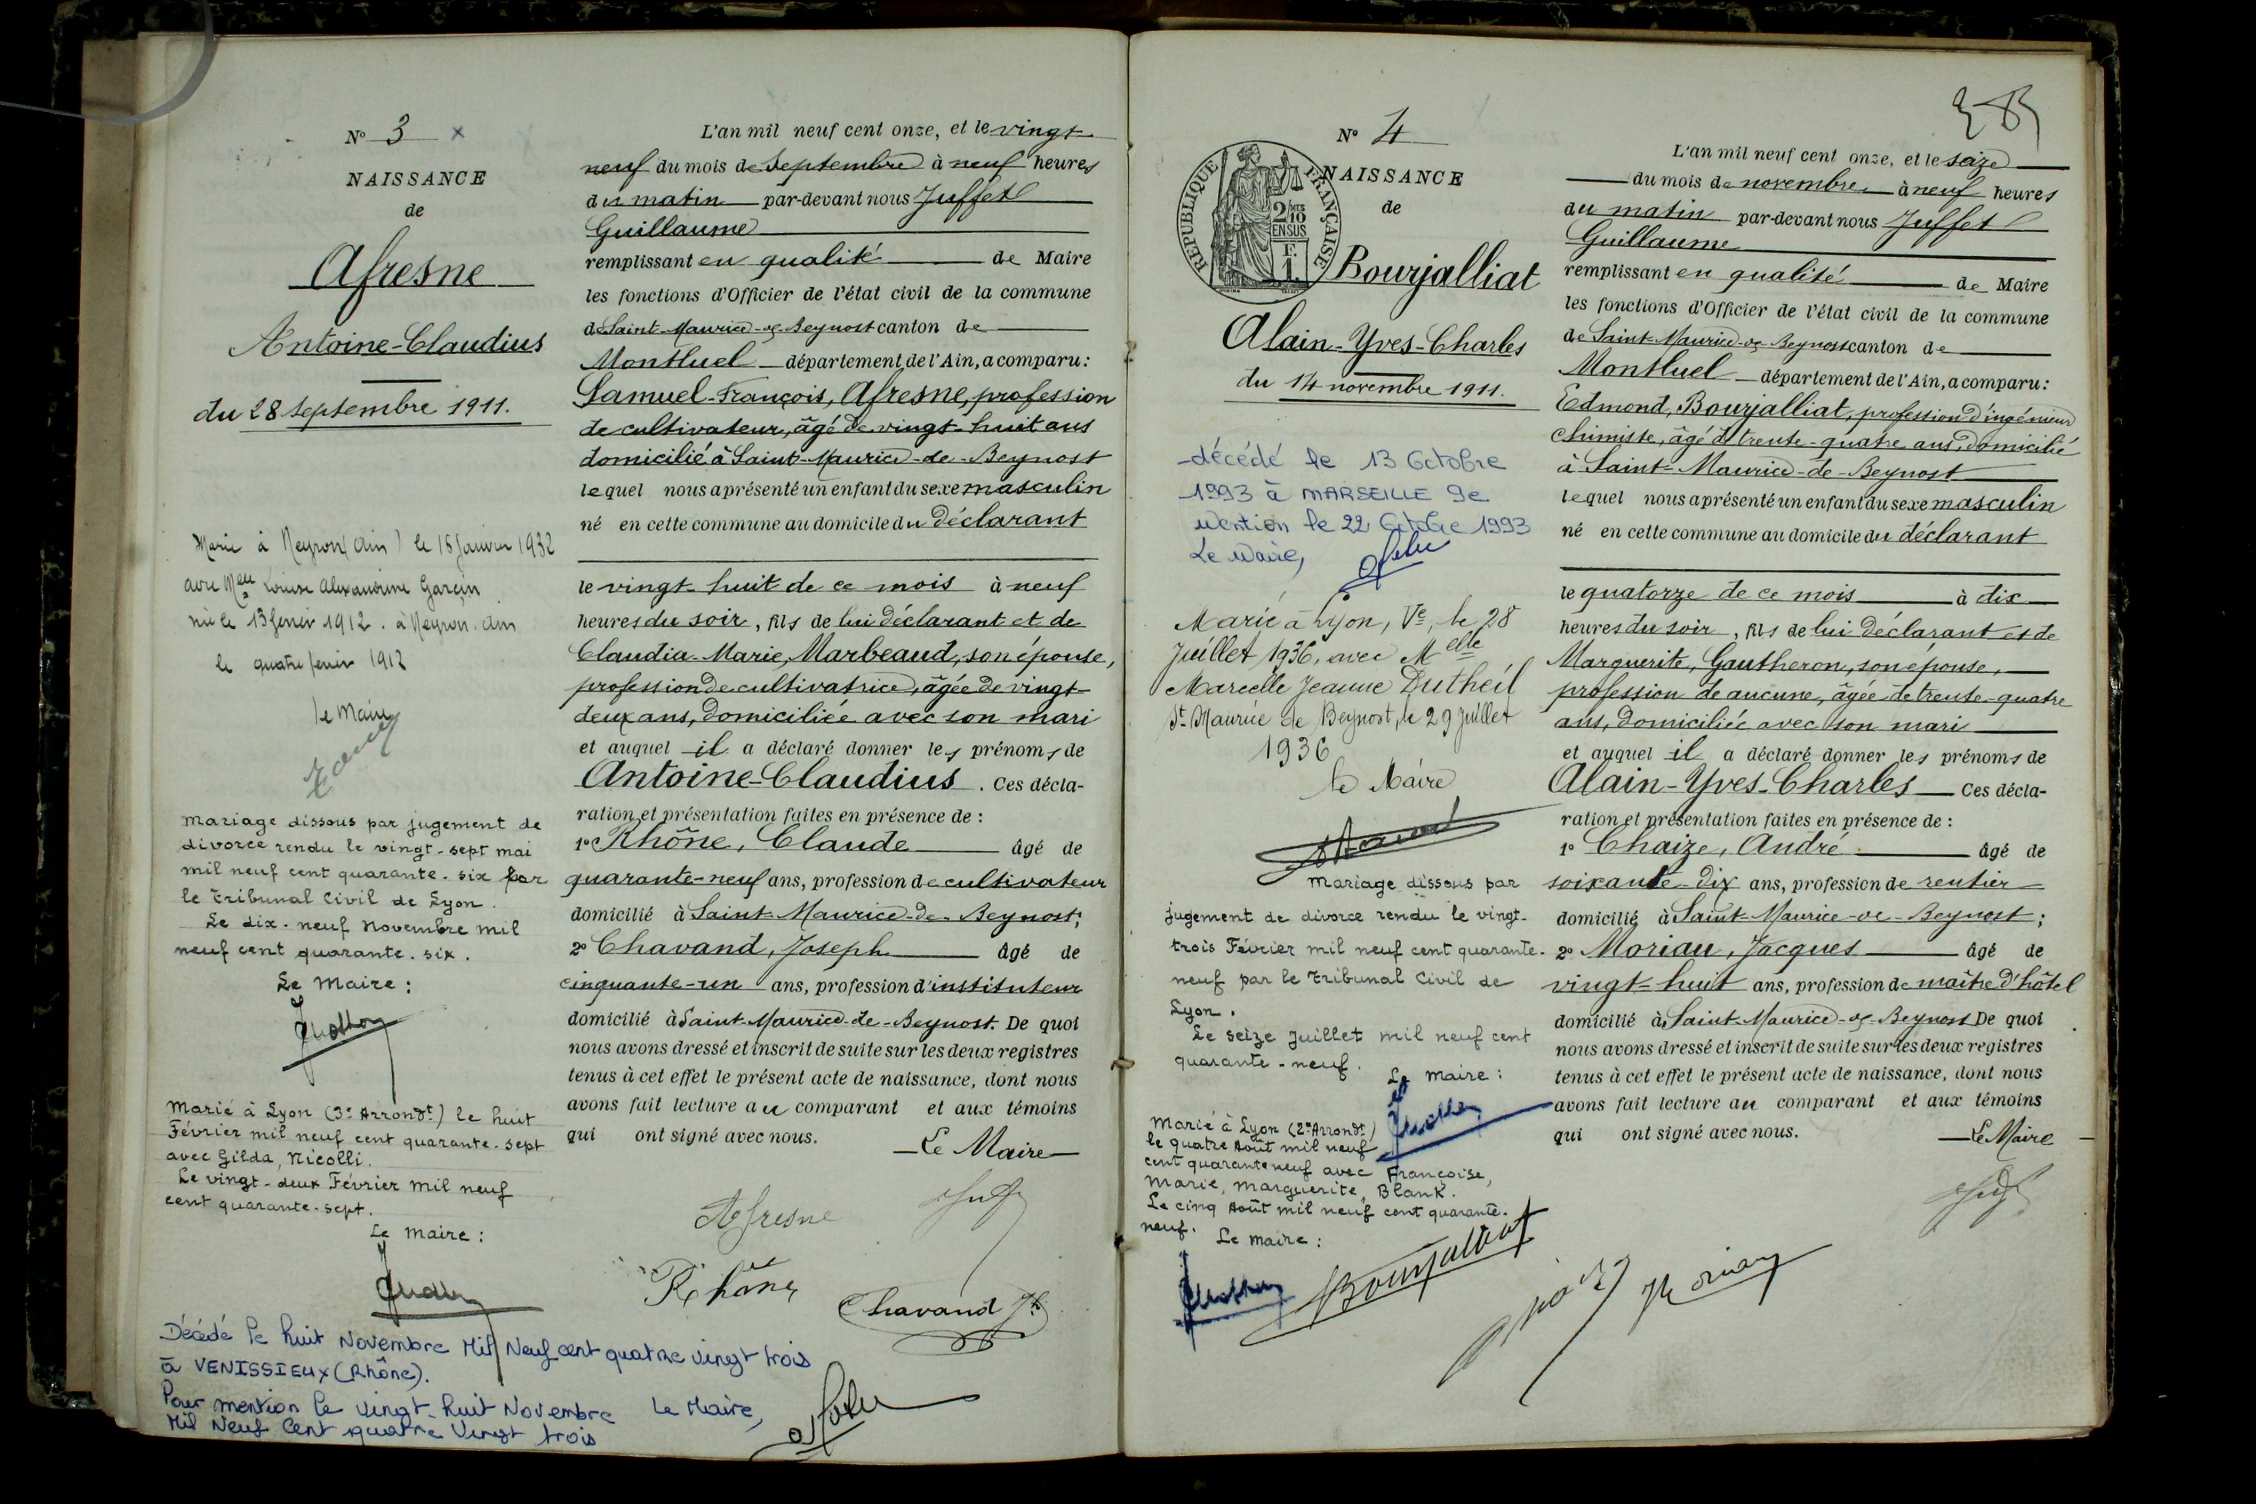 N° 3 x
NAISSANCE
de
Afresne
Antoine-Claudius
du 28 septembre 1911.
Marié à Neyron (Ain) le 15 Janvier 1932
avec Melle Louise Alexandrine Garçin
née le 13 février 1912. à Neyron. Ain
le quatre février 1912
le Maire
mariage dissous par jugement de
divorce rendu le vingt-sept mai
mil neuf cent quarante-six par
le tribunal Civil de Lyon.
Le dix-neuf novembre mil
neuf cent quarante-six.
Le Maire :
Marié à Lyon (3e Arrondt) le huit
Février mil neuf cent quarante-sept
avec Gilda, Nicolli.
Le vingt-deux Février mil neuf
cent quarante-sept.
Le maire :
Décédé le huit Novembre Mil Neuf cent quatre vingt trois
à VENISSIEUX (Rhône).
Pour mention le vingt-huit Novembre Le Maire,
Mil Neuf Cent quatre Vingt trois
L'an mil neuf cent onze, et le vingt
neuf du mois de Septembre à neuf heures
du matin par-devant nous Juffet
Guillaume
remplissant en qualité de Maire
les fonctions d'Officier de l'état civil de la commune
de Saint-Maurice-de-Beynost canton de
Montluel département de l'Ain, a comparu :
Samuel-François, Afresne, profession
de cultivateur, âgé de vingt-huit ans
domicilié à Saint-Maurice-de-Beynost
lequel nous a présenté un enfant du sexe masculin
né en cette commune au domicile du déclarant
le vingt-huit de ce mois à neuf
heures du soir, fils de lui déclarant et de
Claudia-Marie, Marbeaud, son épouse,
profession de cultivatrice, âgée de vingt-
deux ans, domiciliée avec son mari
et auquel il a déclaré donner les prénoms de
Antoine-Claudius. Ces décla-
ration et présentation faites en présence de :
1° Rhône, Claude âgé de
quarante-neuf ans, profession de cultivateur
domicilié à Saint-Maurice-de-Beynost;
2° Chavand, Joseph âgé de
cinquante-un ans, profession d'instituteur
domicilié à Saint-Maurice-de-Beynost. De quoi
nous avons dressé et inscrit de suite sur les deux registres
tenus à cet effet le présent acte de naissance, dont nous
avons fait lecture au comparant et aux témoins
qui ont signé avec nous.
Le Maire
Afresne
Rhône
Chavand Jh
N° 4
NAISSANCE
de
RÉPUBLIQUE FRANÇAISE
2/10 MES
EN SUS
F.
1.
Bourjalliat
Alain-Yves-Charles
du 14 novembre 1911.
décédé le 13 Octobre
1993 à MARSEILLE 9e
mention le 22 Octobre 1993
Le Maire,
Marié à Lyon, Ve, le 28
Juillet 1936, avec Melle
Marcelle Jeanne Dutheil
St Maurice de Beynost, le 29 Juillet
1936
le Maire
mariage dissous par
jugement de divorce rendu le vingt-
trois Février mil neuf cent quarante-
neuf par le tribunal Civil de
Lyon.
Le seize juillet mil neuf cent
quarante-neuf.
Le maire :
Marié à Lyon (2e Arrondt)
le quatre Août mil neuf
cent quarante neuf avec Françoise,
Marie, Marguerite, Blank.
Le cinq Août mil neuf cent quarante-
neuf.
Le maire :
L'an mil neuf cent onze, et le seize
du mois de novembre à neuf heures
du matin par-devant nous Juffet
Guillaume
remplissant en qualité de Maire
les fonctions d'Officier de l'état civil de la commune
de Saint-Maurice-de-Beynost canton de
Montluel département de l'Ain, a comparu :
Edmond, Bourjalliat, profession d'ingénieur
chimiste, âgé de trente-quatre ans, domicilié
à Saint-Maurice-de-Beynost
lequel nous a présenté un enfant du sexe masculin
né en cette commune au domicile du déclarant
le quatorze de ce mois à dix
heures du soir, fils de lui déclarant et de
Marguerite, Gautheron, son épouse,
profession de aucune, âgée de trente-quatre
ans, domiciliée avec son mari
et auquel il a déclaré donner les prénoms de
Alain-Yves-Charles Ces décla-
ration et présentation faites en présence de :
1° Chaize, André âgé de
soixante-dix ans, profession de rentier
domicilié à Saint-Maurice-de-Beynost;
2° Moriau, Jacques âgé de
vingt-huit ans, profession de maître d'hôtel
domicilié à Saint-Maurice-de-Beynost De quoi
nous avons dressé et inscrit de suite sur les deux registres
tenus à cet effet le présent acte de naissance, dont nous
avons fait lecture au comparant et aux témoins
qui ont signé avec nous.
Le Maire
Bourjalliat
Moriau